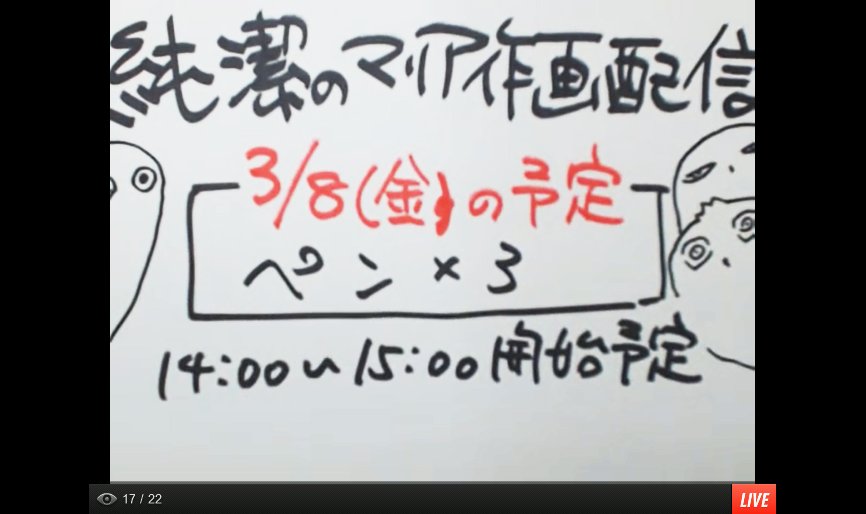 純潔のマリア作画配信
3/8(金)の予定
ペン×3
14:00〜15:00開始予定
17 / 22
LIVE